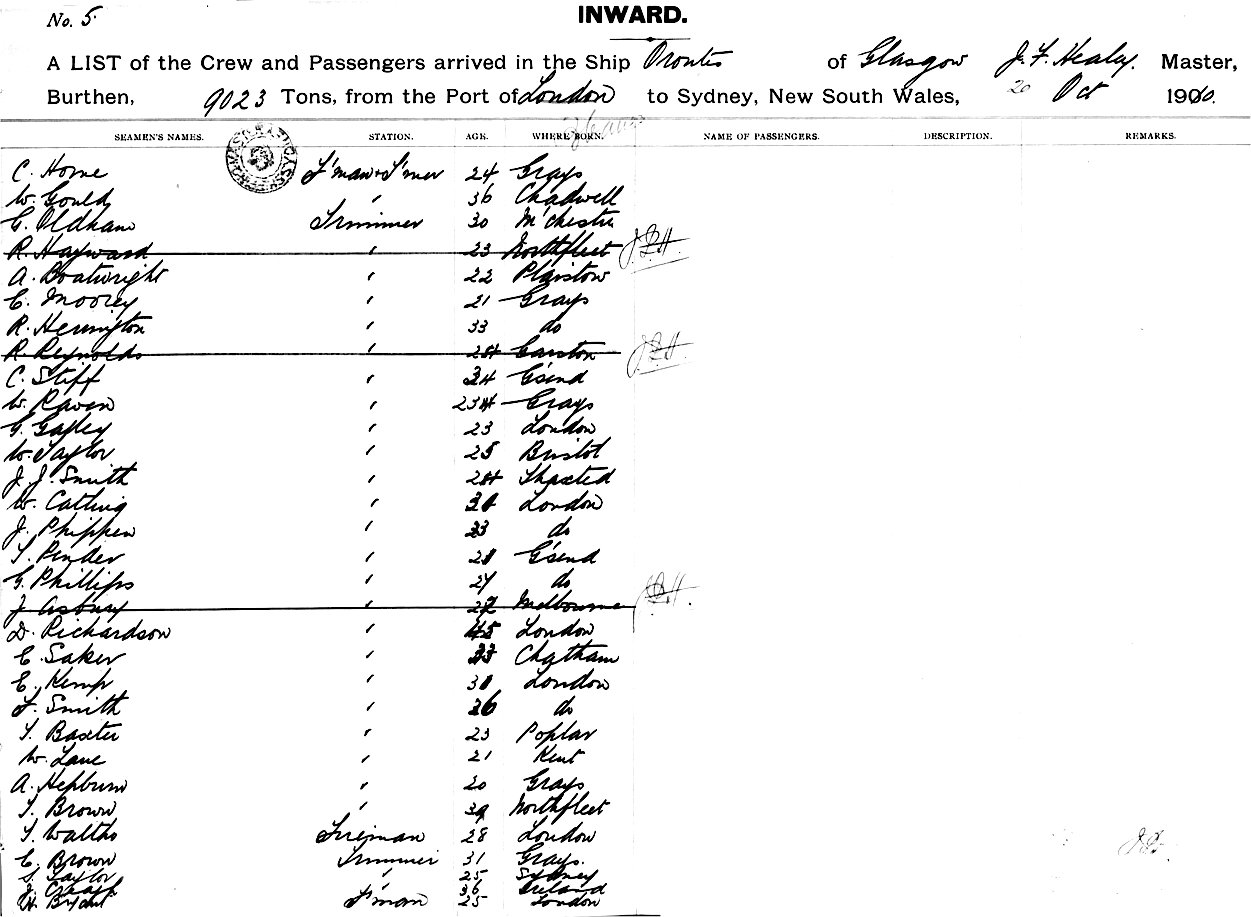 No. 5
INWARD.
A LIST of the Crew and Passengers arrived in the Ship Orontes of Glasgow J. F. Healey. Master,
Burthen, 9023 Tons, from the Port of London to Sydney, New South Wales, 20 Oct 1910.
SEAMEN'S NAMES. STATION. AGE. WHERE BORN. NAME OF PASSENGERS. DESCRIPTION. REMARKS.
C. Horne F'man & T'mer 24 Grays
W. Gould " 36 Chadwell
G. Oldham Trimmer 30 M'chester
R. Hayward " 23 Northfleet J.F.H.
A. Boatwright " 22 Plaistow
C. Moorey " 21 Grays
R. Herrington " 33 do
R. Reynolds " Garston J.F.H.
C. Stiff " 34 G'send
W. Raven " Grays
G. " 23 London
W. Taylor " 25 Bristol
J. J. Smith " Thaxted
W. Catling " London
J. Phippen " 33 do
T. Pender " G'send
G. Phillips " do
J. Asbury " Melbourne J.F.H.
D. Richardson " 45 London
E. Saker " 33 Chatham
E. Kemp " London
F. Smith " 36 do
T. Baxter " 23 Poplar
W. Lane " 21 Kent
A. Hepburn " 20 Grays
T. Brown " Northfleet
T. Waltho Fireman 28 London
C. Brown Trimmer 31 Grays.
S. Taylor " 25 Sydney
J. " 36 Ireland
H. Bryant F'man 25 London